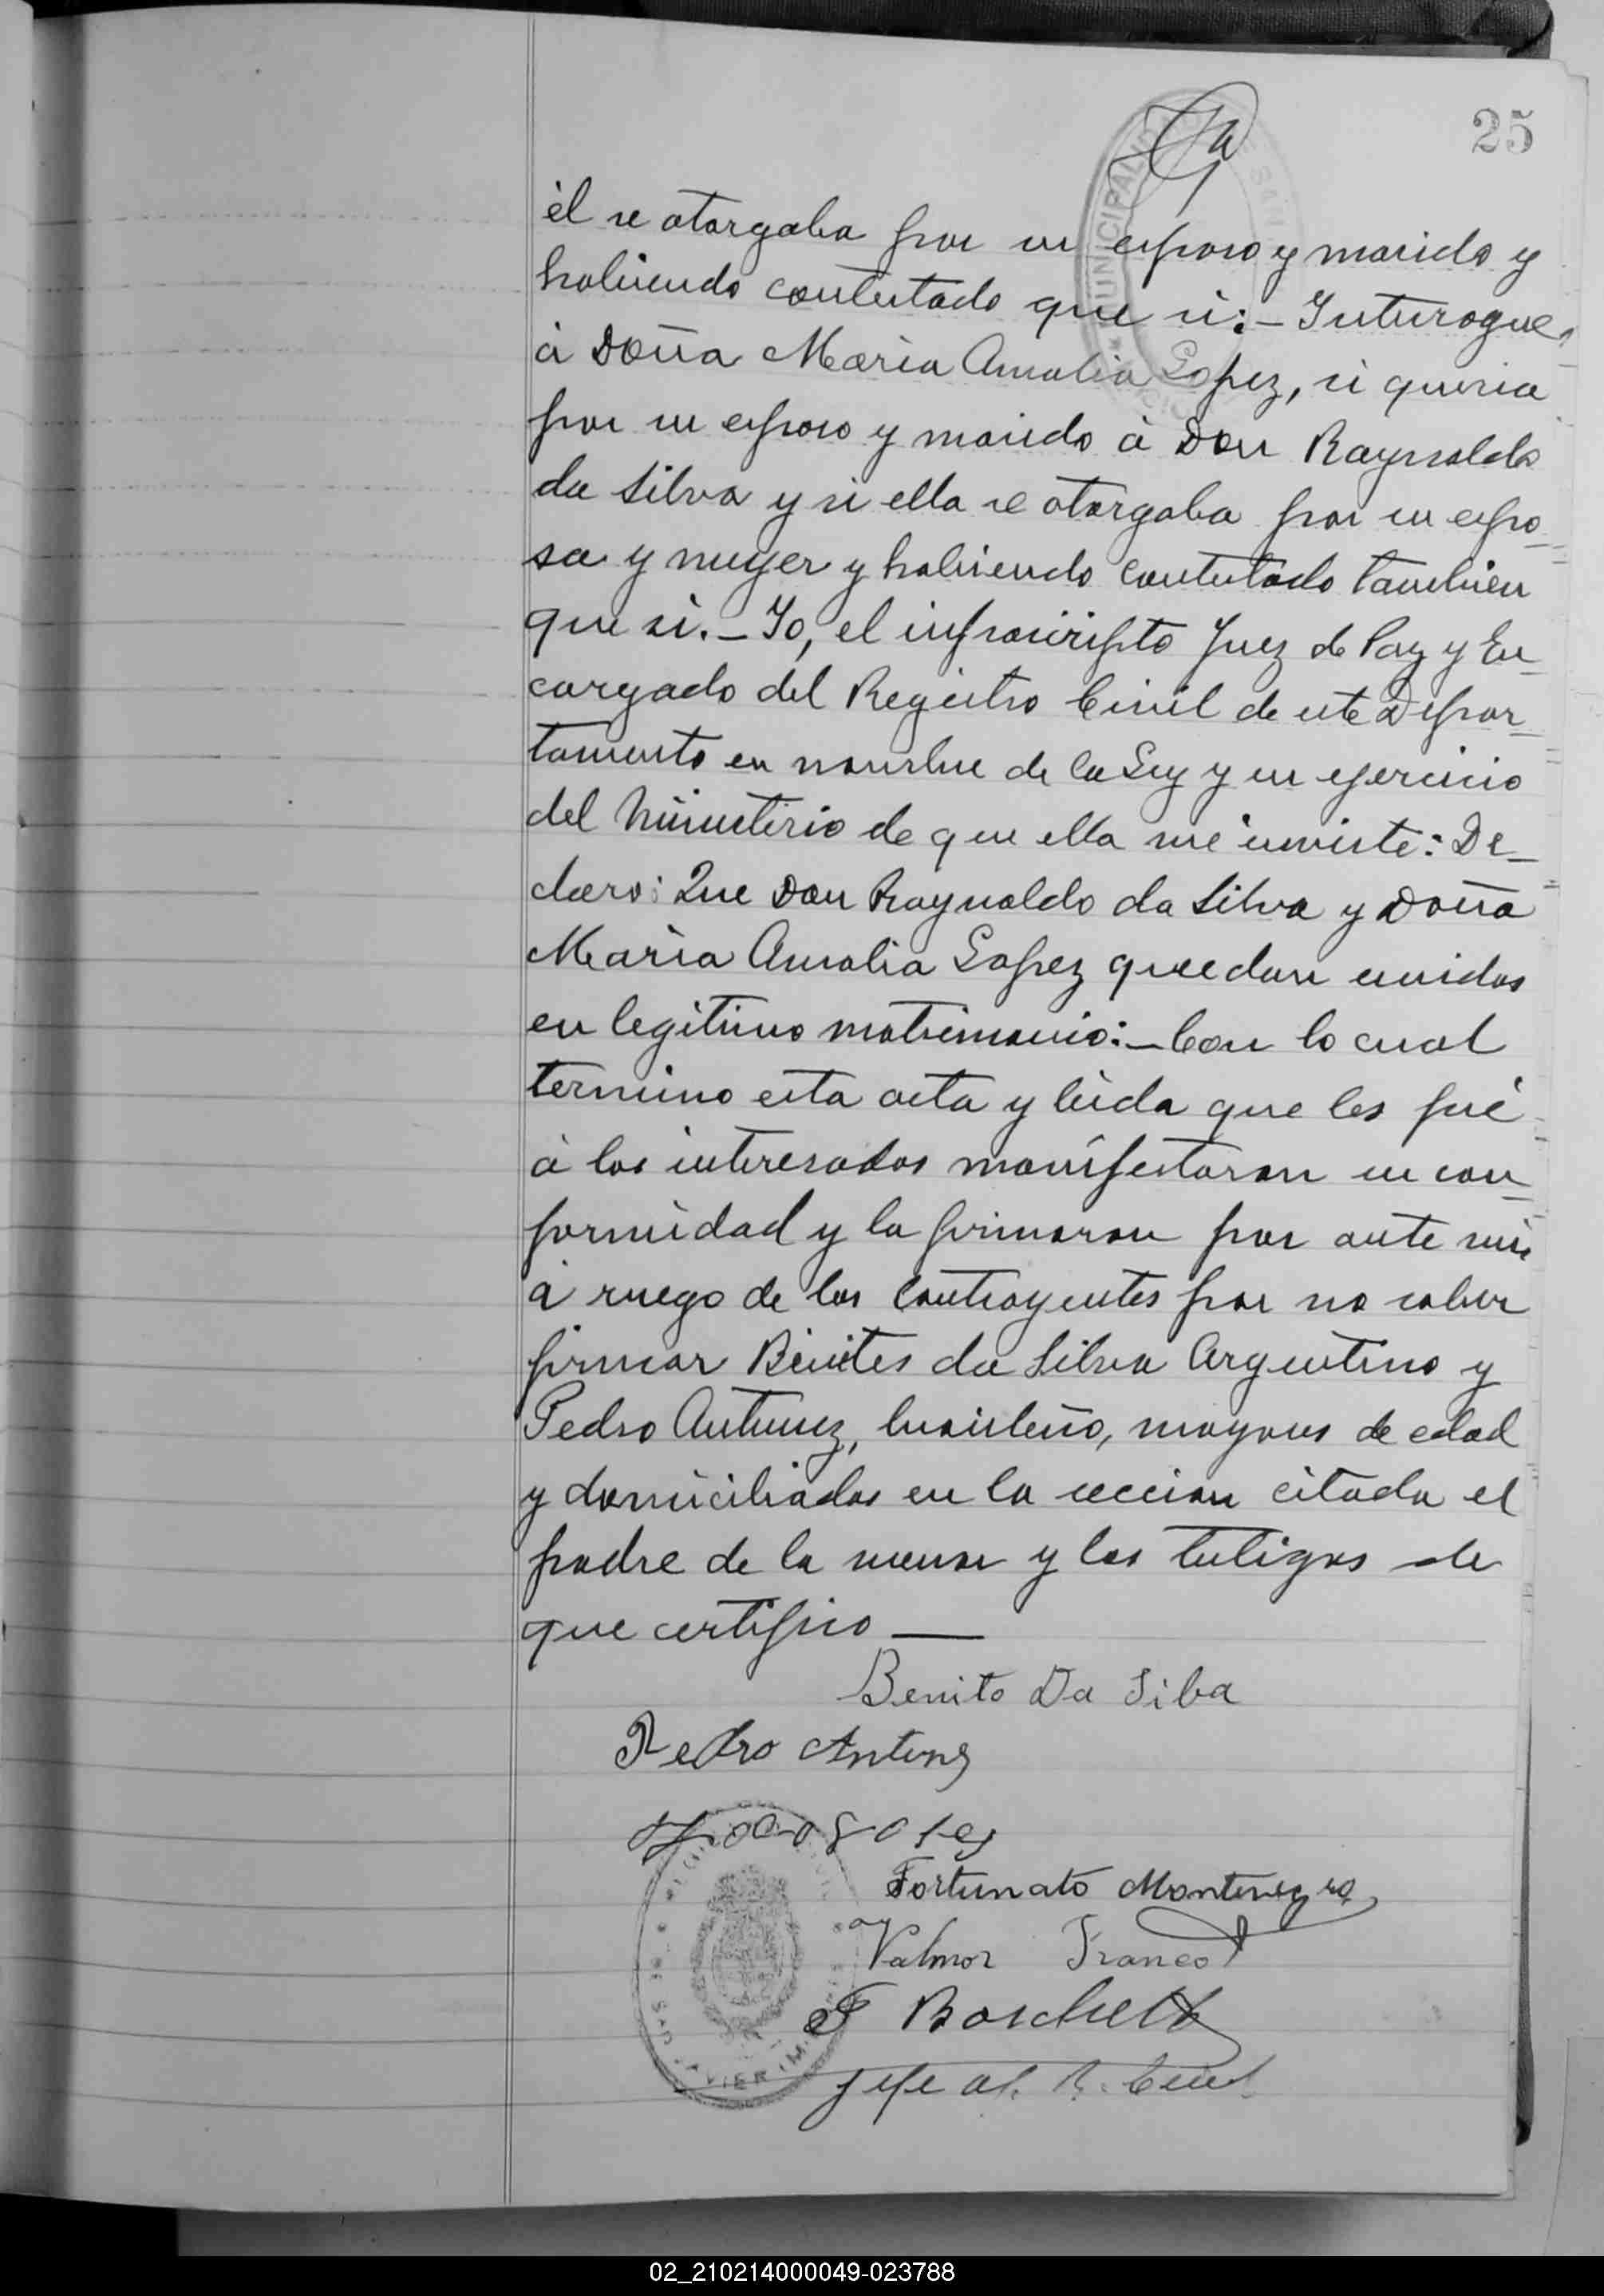 25
él se otorgaba por su esposo y marido y
habiendo contestado que si:- Interogué,
á Doña Maria Amalia Lopez, si queria
por su esposo y marido á Don Raynaldo
da Silva y si ella se otorgaba por su espo_
sa y muger y habiendo contestado tambien
que si._ Yo, el infrascripto Juez de Paz y En_
cargado del Registro Civil de este Depar_
tamento en nombre de la Ley y en ejercicio
del Ministerio de que ella me inviste: De_
claro: Que Don Raynaldo da Silva y Doña
Maria Amalia Lopez quedan unidos
en legitimo matrimonio:_ Con lo cual
termino esta acta y leida que les fué
á los interesados manifestaron su con_
formidad y la firmaron por ante mi
á ruego de los contrayentes por no saber
firmar Benites da Silva Argentino y
Pedro Antunez, brasileño, mayores de edad
y domiciliados en la seccion citada el
padre de la menor y los testigos de
que certifico __
Benito Da Silba
Pedro Antung
Fortunato Montenegro
Valmor Franco
F Boschetti
Jefe del R. Civil
02_210214000049-023788